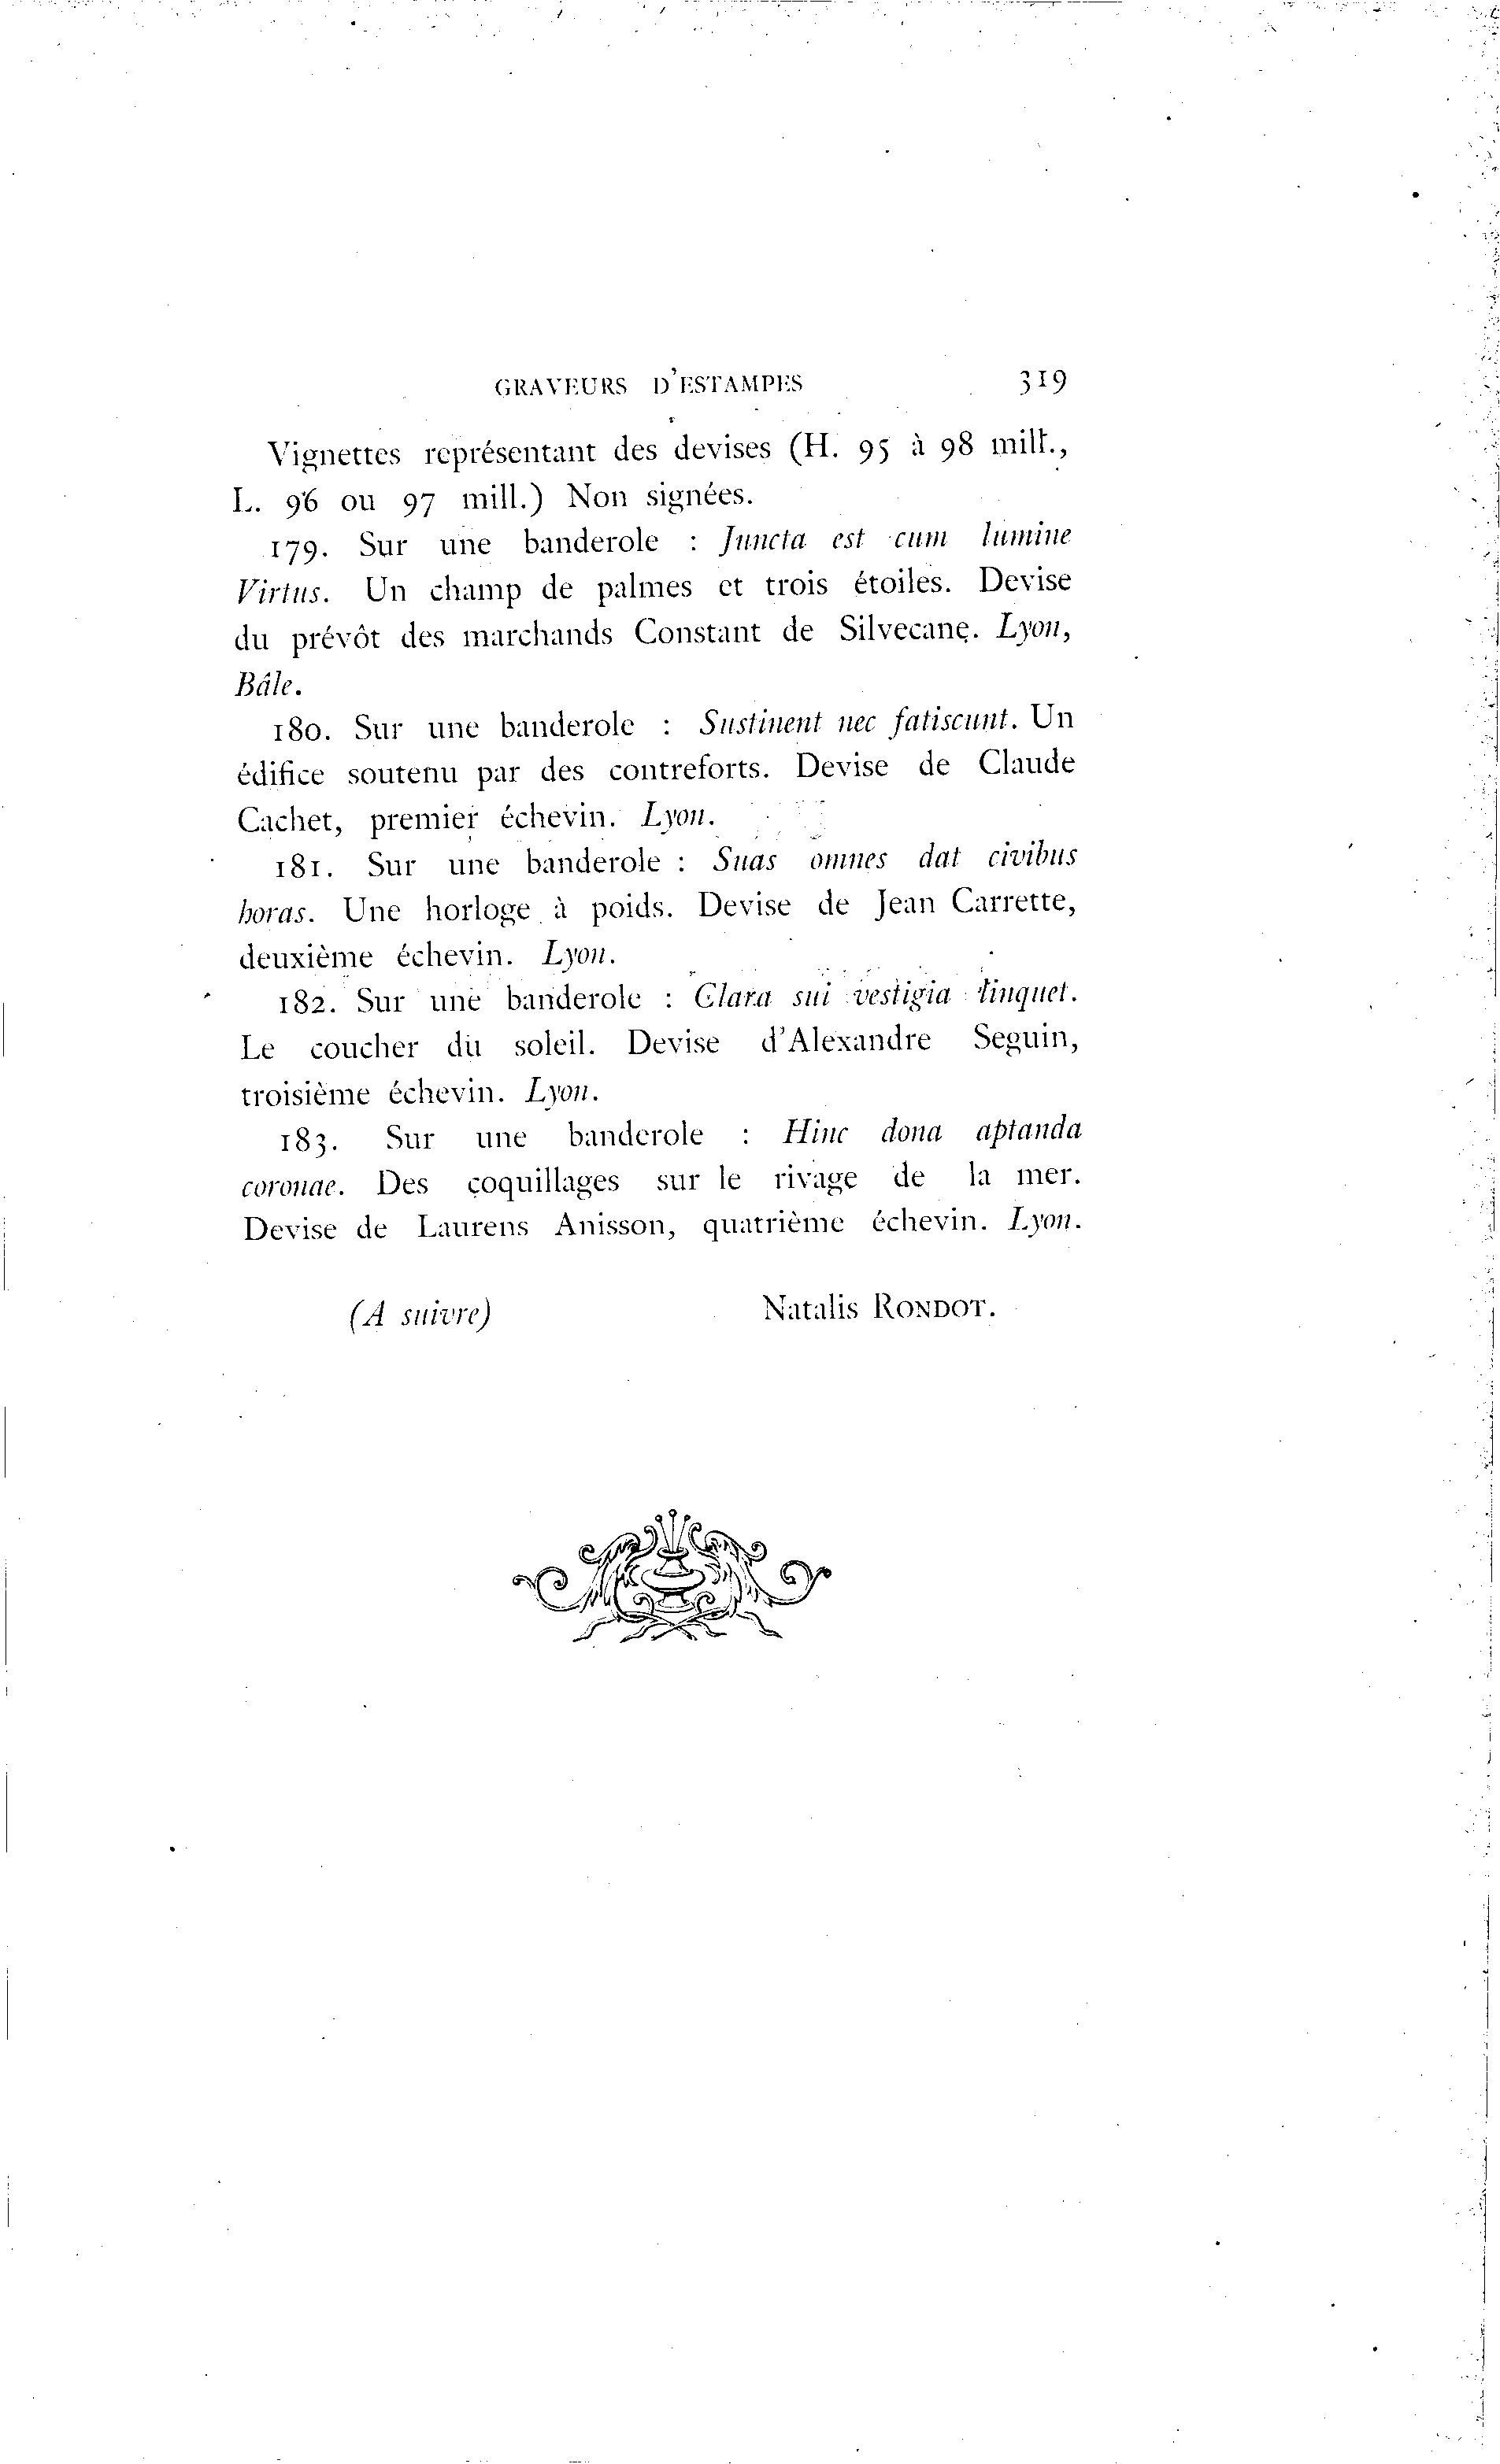 GRAVEURS D'ESTAMPES 319
Vignettes représentant des devises (H. 95 à 98 mill.,
L. 96 ou 97 mill.) Non signées.
179. Sur une banderole : Juncta est cum lumine
Virtus. Un champ de palmes et trois étoiles. Devise
du prévôt des marchands Constant de Silvecane. Lyon,
Bâle.
180. Sur une banderole : Sustinent nec fatiscunt. Un
édifice soutenu par des contreforts. Devise de Claude
Cachet, premier échevin. Lyon.
181. Sur une banderole : Suas omnes dat civibus
horas. Une horloge à poids. Devise de Jean Carrette,
deuxième échevin. Lyon.
182. Sur une banderole : Clara sui vestigia linquet.
Le coucher du soleil. Devise d'Alexandre Seguin,
troisième échevin. Lyon.
183. Sur une banderole : Hinc dona aptanda
coronae. Des coquillages sur le rivage de la mer.
Devise de Laurens Anisson, quatrième échevin. Lyon.
(A suivre) Natalis RONDOT.